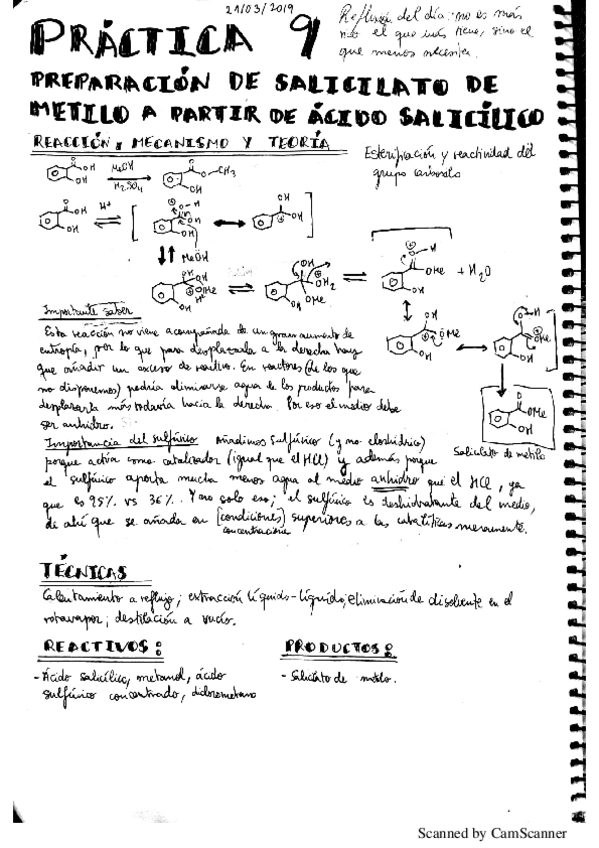 21/03/2019
Reflexión del día: no es más
rico el que más tiene, sino el
que menos necesita.
PRÁCTICA 9
PREPARACIÓN DE SALICILATO DE
METILO A PARTIR DE ÁCIDO SALICÍLICO
REACCIÓN, MECANISMO Y TEORÍA
Esterificación y reactividad del
grupo carbonilo
MeOH
H2SO4
H+
MeOH
+ H2O
Importante saber
Esta reacción no viene acompañada de un gran aumento de
entropía, por lo que para desplazarla a la derecha hay
que añadir un exceso de reactivo. En reactores (de los que
no disponemos) podría eliminarse agua de los productos para
desplazarla más todavía hacia la derecha. Por eso el medio debe
ser anhidro.
Salicilato de metilo
Importancia del sulfúrico Añadimos sulfúrico (y no clorhídrico)
porque actúa como catalizador (igual que el HCl) y además porque
el sulfúrico aporta mucha menos agua al medio anhidro que el HCl, ya
que es 95% vs 36%. Y no solo eso; el sulfúrico es deshidratante del medio,
de ahí que se añada en [condiciones] superiores a las catalíticas meramente.
concentraciones
TÉCNICAS
Calentamiento a reflujo; extracción líquido-líquido; eliminación de disolvente en el
rotavapor; destilación a vacío.
REACTIVOS:
- Ácido salicílico, metanol, ácido
sulfúrico concentrado, diclorometano
PRODUCTOS:
- Salicilato de metilo.
Scanned by CamScanner